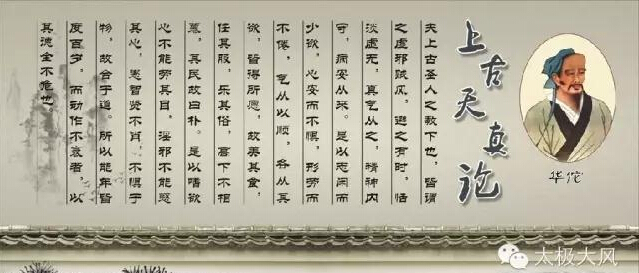 上古天真论
华佗
夫上古圣人之教下也，皆谓
之虚邪贼风，避之有时，恬
淡虚无，真气从之，精神内
守，病安从来。是以志闲而
少欲，心安而不惧，形劳而
不倦，气从以顺，各从其
欲，皆得所愿，故美其食，
任其服，乐其俗，高下不相
慕，其民故曰朴。是以嗜欲
心不能劳其目，淫邪不能惑
其心，愚智贤不肖，不惧于
物，故合于道。所以能年皆
度百岁，而动作不衰者，以
其德全不危也。
太极大风